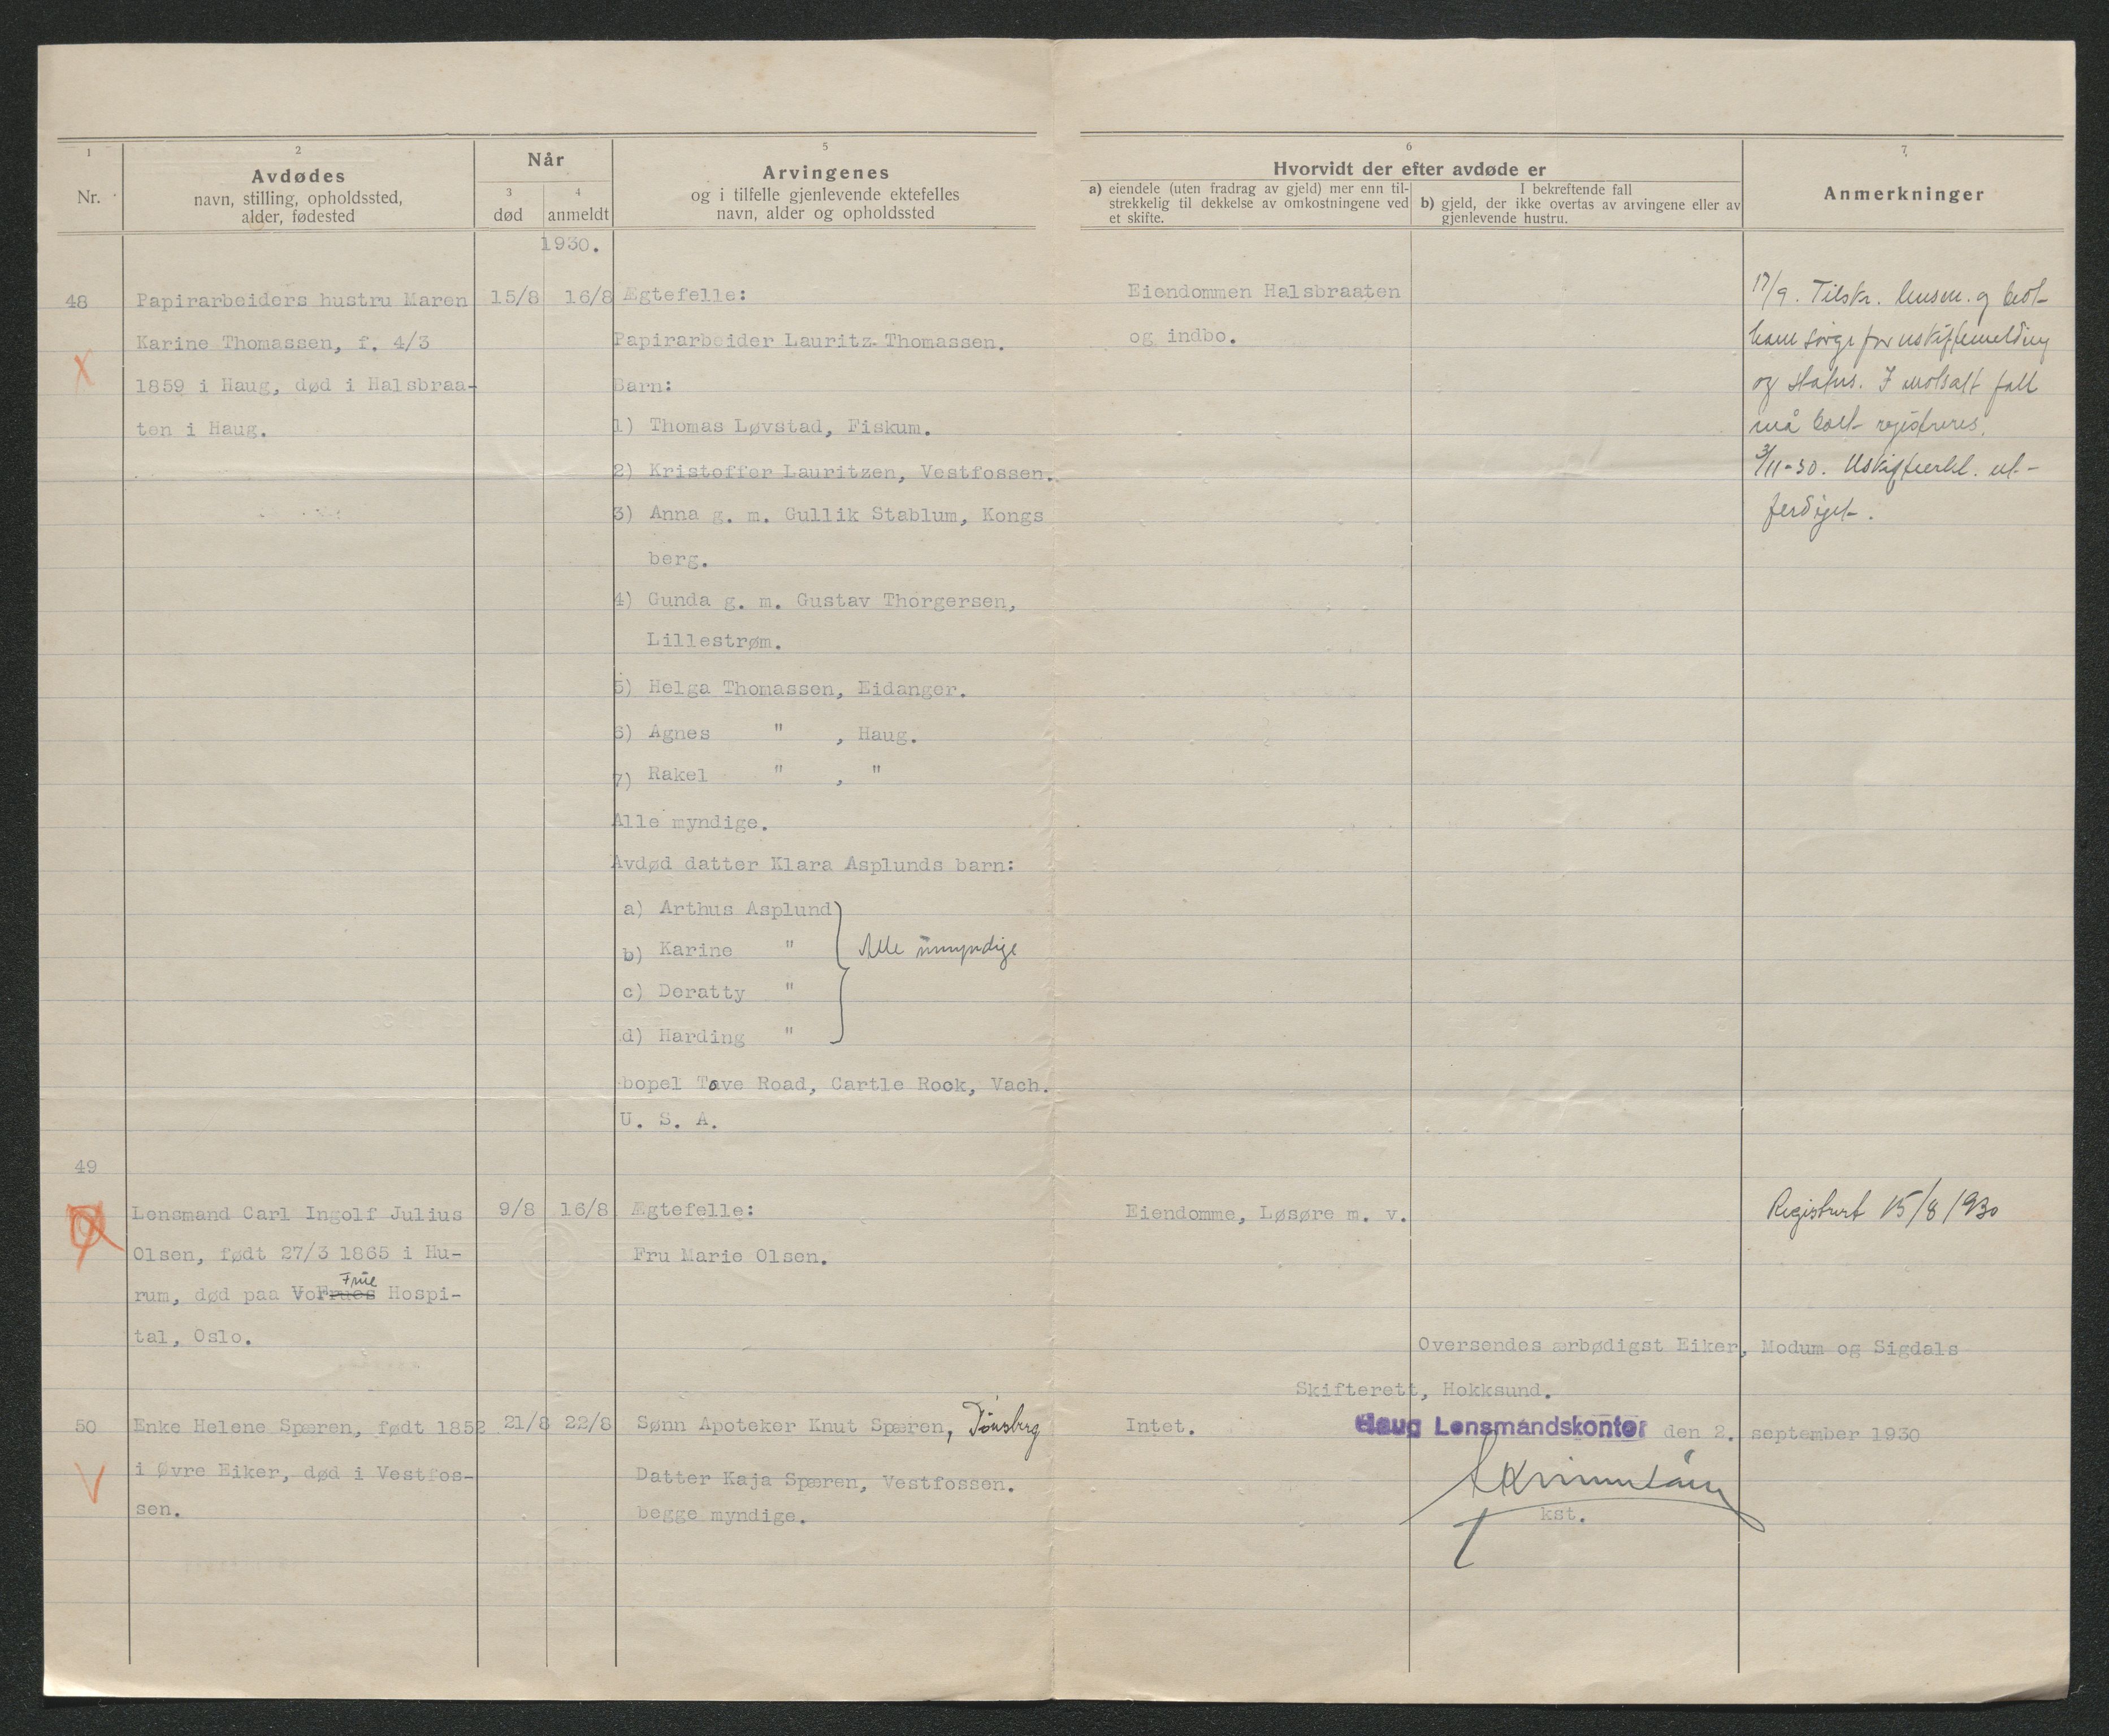 1
Nr.
2
Avdødes
navn, stilling, opholdssted,
alder, fødested
Når
3
død
4
anmeldt
5
Arvingenes
og i tilfelle gjenlevende ektefelles
navn, alder og opholdssted
6
Hvorvidt der efter avdøde er
a) eiendele (uten fradrag av gjeld) mer enn til-
strekkelig til dekkelse av omkostningene ved
et skifte.
I bekreftende fall
b) gjeld, der ikke overtas av arvingene eller av
gjenlevende hustru.
7
Anmerkninger
1930.
48
Papirarbeiders hustru Maren
Karine Thomassen, f. 4/3
1859 i Haug, død i Halsbraa-
ten i Haug.
15/8 16/8
Ægtefelle:
Papirarbeider Lauritz Thomassen.
Barn:
1) Thomas Løvstad, Fiskum.
2) Kristoffer Lauritzen, Vestfossen.
3) Anna g. m. Gullik Stablum, Kongs
berg.
4) Gunda g. m. Gustav Thorgersen,
Lillestrøm.
5) Helga Thomassen, Eidanger.
6) Agnes " , Haug.
7) Rakel " , "
Alle myndige.
Avdød datter Klara Asplunds barn:
a) Arthus Asplund
b) Karine "
c) Deratty "
d) Harding "
Alle umyndige
bopel Tove Road, Cartle Rock, Vach.
U. S. A.
Eiendommen Halsbraaten
og indbo.
17/9. Tilskr. lensm. og bedt
ham sørge for uskiftemelding
og status. I motsatt fall
må boet registreres.
3/11-30. Uskifteerkl. ut-
ferdiget.
49
Lensmand Carl Ingolf Julius
Olsen, født 27/3 1865 i Hu-
Frue
rum, død paa VorFrues Hospi-
tal, Oslo.
9/8 16/8
Ægtefelle:
Fru Marie Olsen.
Eiendomme, Løsøre m. v.
Registrert 15/8/930
50
Enke Helene Spæren, født 1852
i Øvre Eiker, død i Vestfos-
sen.
21/8 22/8
Sønn Apoteker Knut Spæren, Tönsberg
Datter Kaja Spæren, Vestfossen.
begge myndige.
Intet.
Oversendes ærbødigst Eiker, Modum og Sigdals
Skifterett, Hokksund.
Haug Lensmandskontor den 2. september 1930
kst.